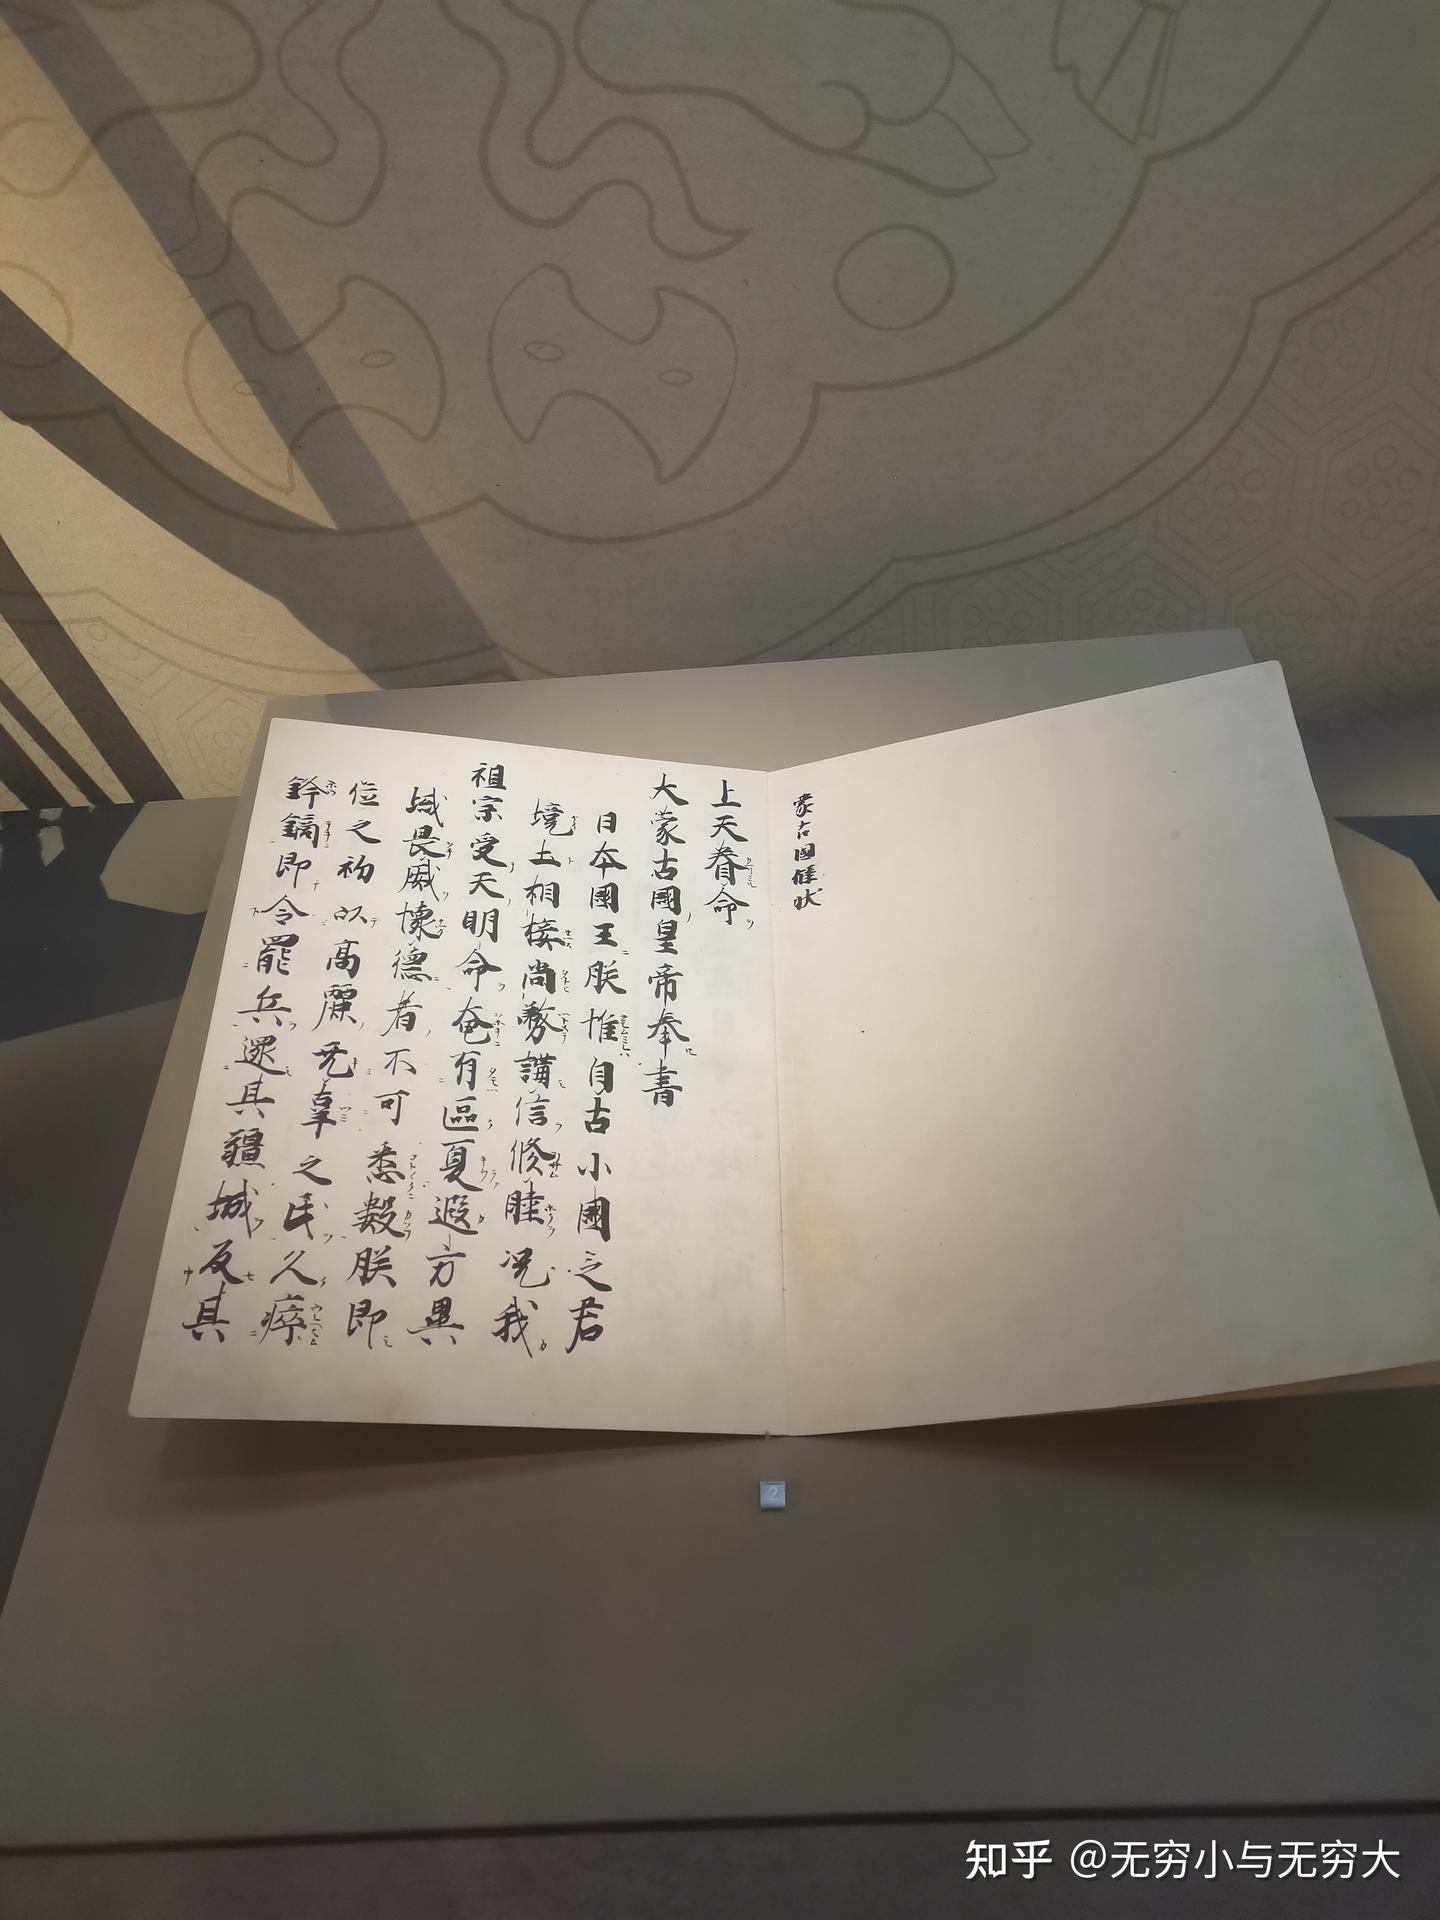 蒙古國牒状
上天眷命
大蒙古國皇帝奉書
日本國王朕惟自古小國之君
境土相接尚務講信修睦况我
祖宗受天明命奄有區夏遐方異
域畏威懐德者不可悉數朕即
位之初以高麗无辜之民久瘁
鋒鏑即令罷兵還其疆城反其
2
知乎 @无穷小与无穷大